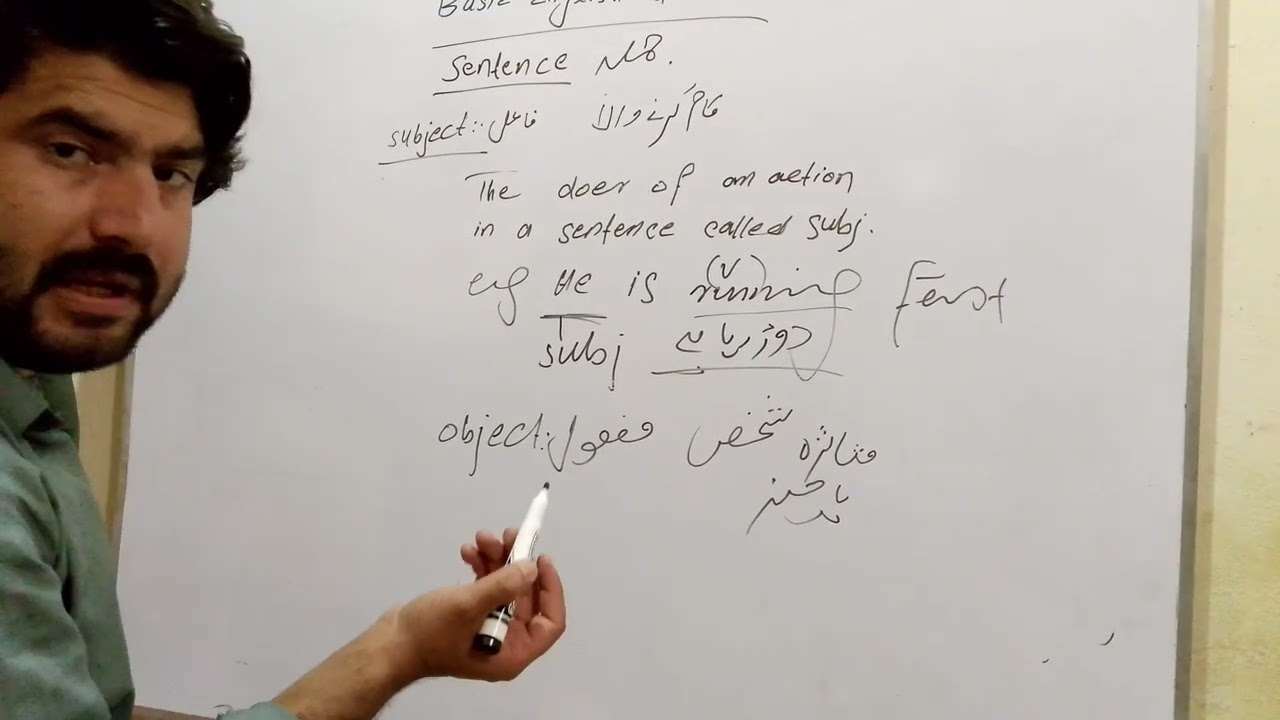 Basic English
Sentence جملہ.
subject:- فاعل کام کرنے والا
The doer of an action
in a sentence called subj.
eg He is running Fast
(v)
subj دوڑ رہا ہے
object: مفعول متاثرہ شخص
یا چیز